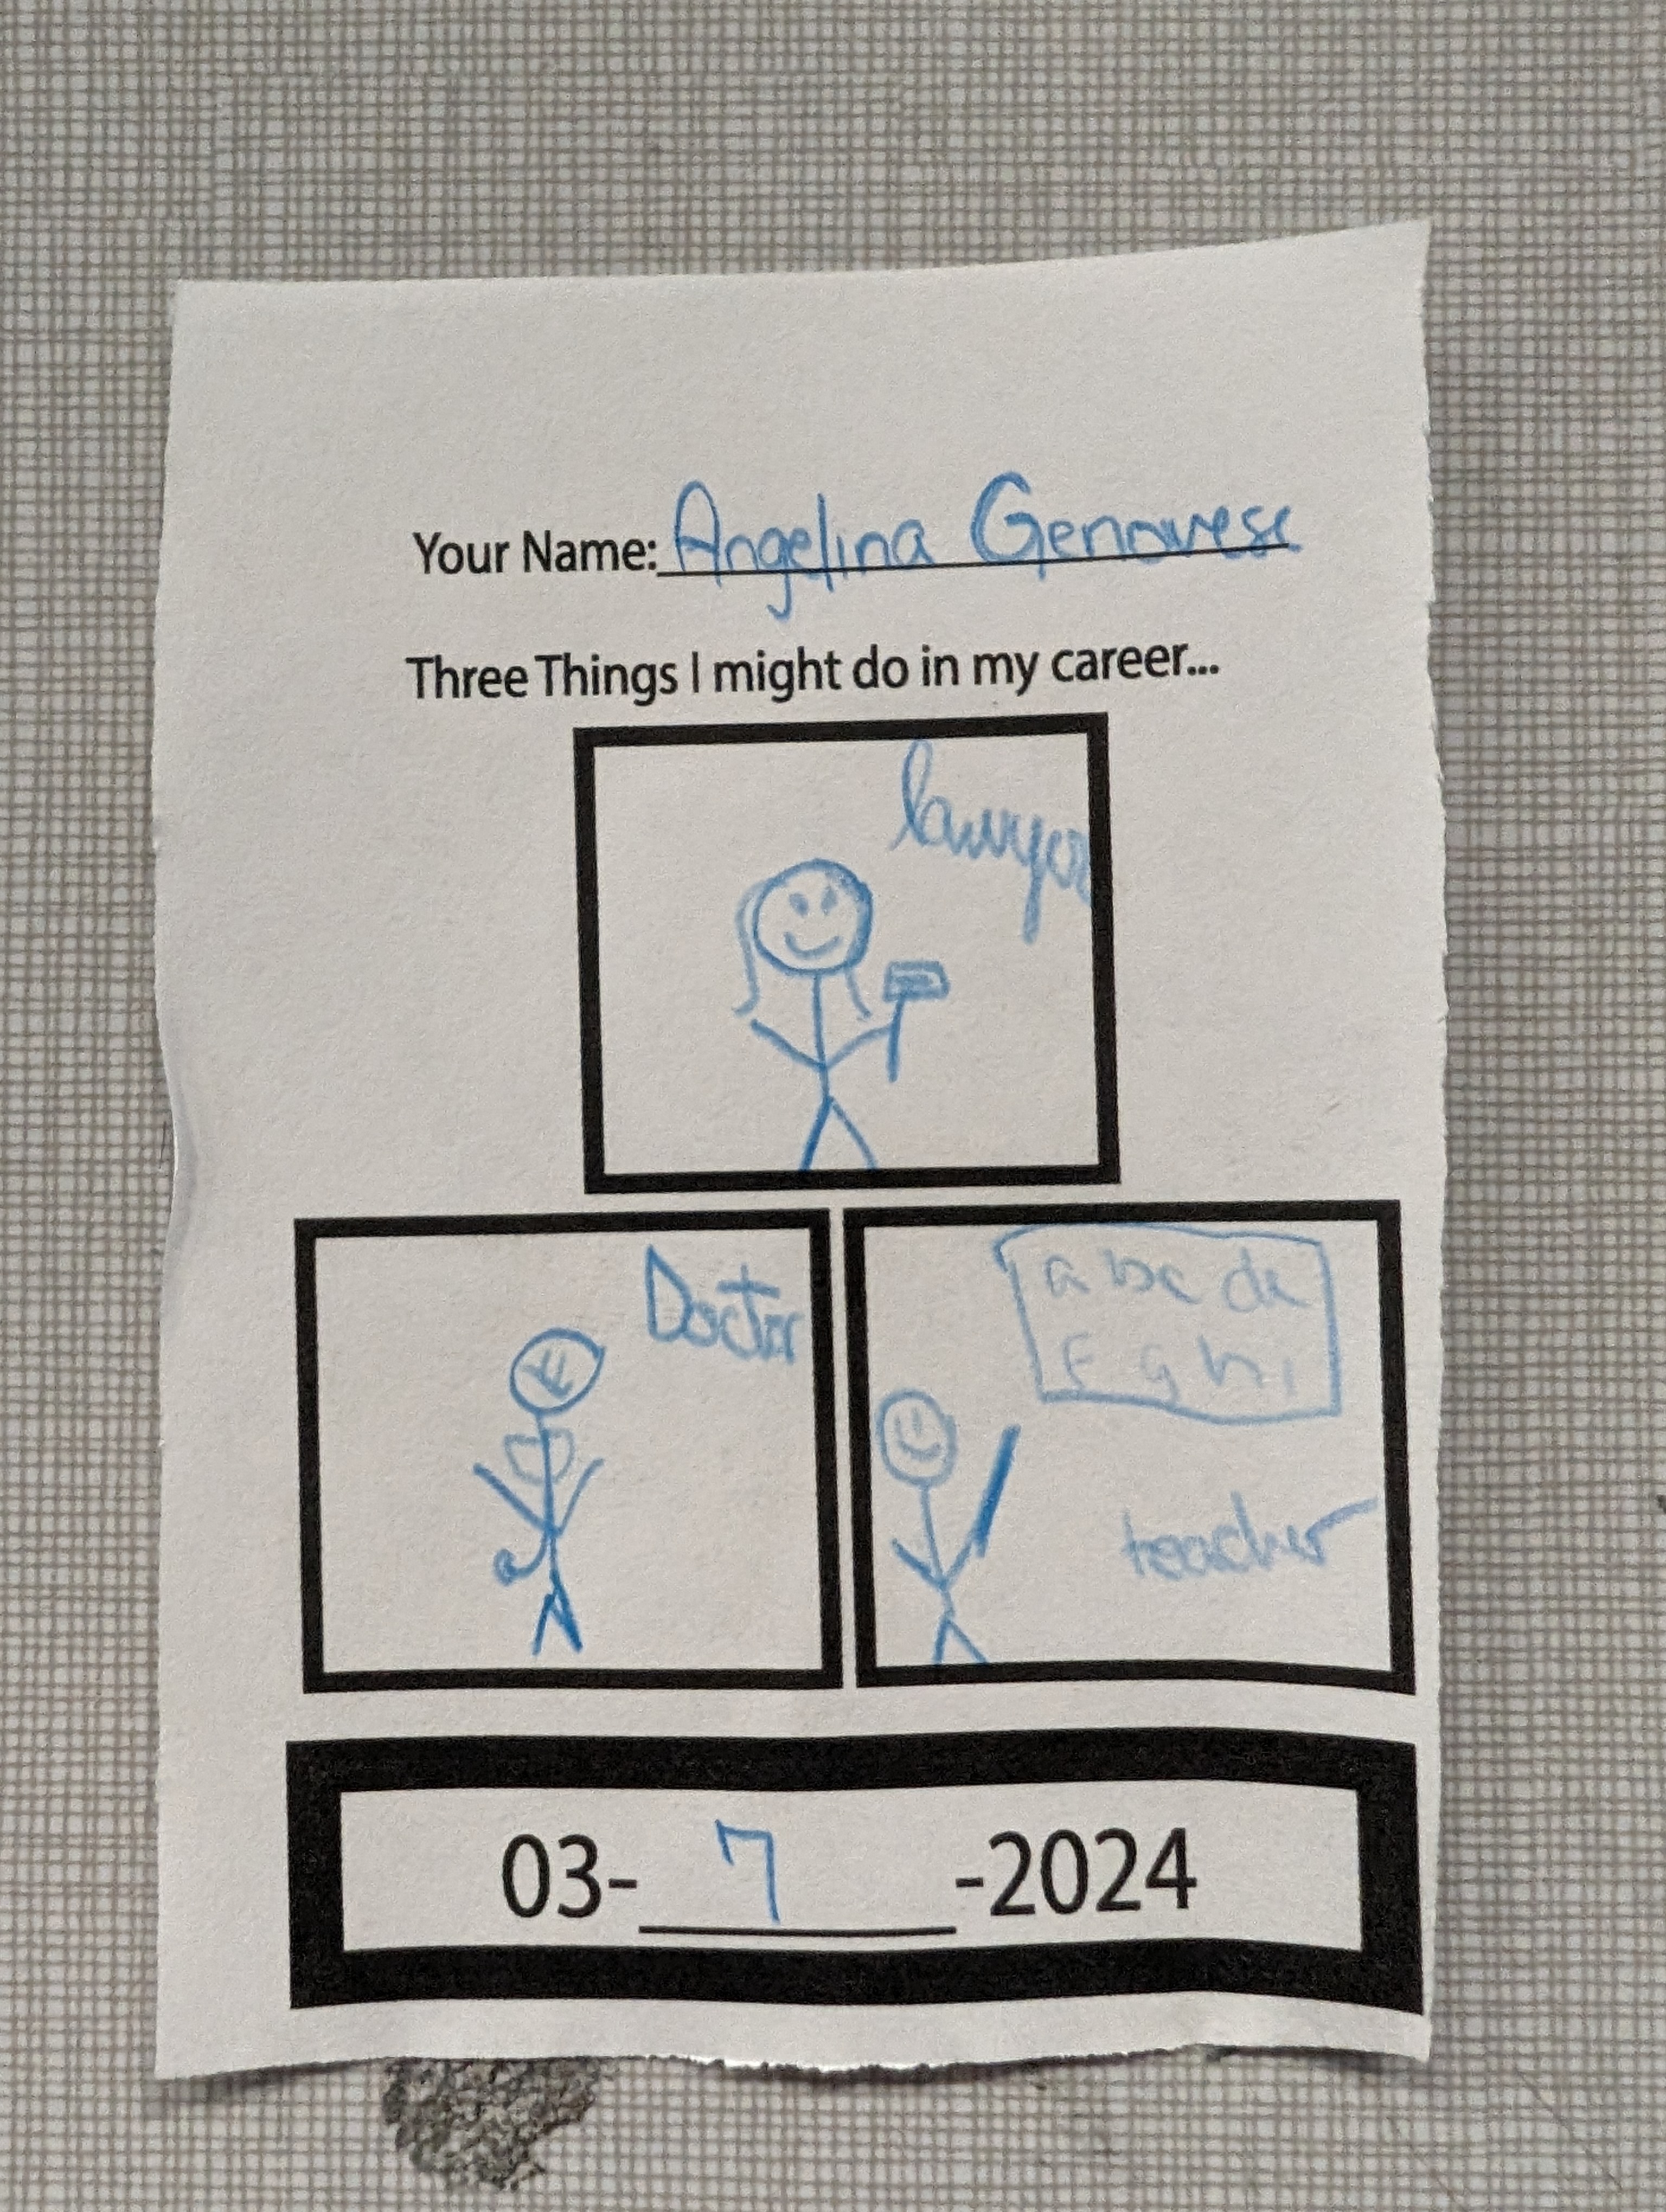 Your Name: Angelina Genovese
Three Things I might do in my career...
lawyer
Doctor
a bc de
F g h i
teacher
03- 7 -2024